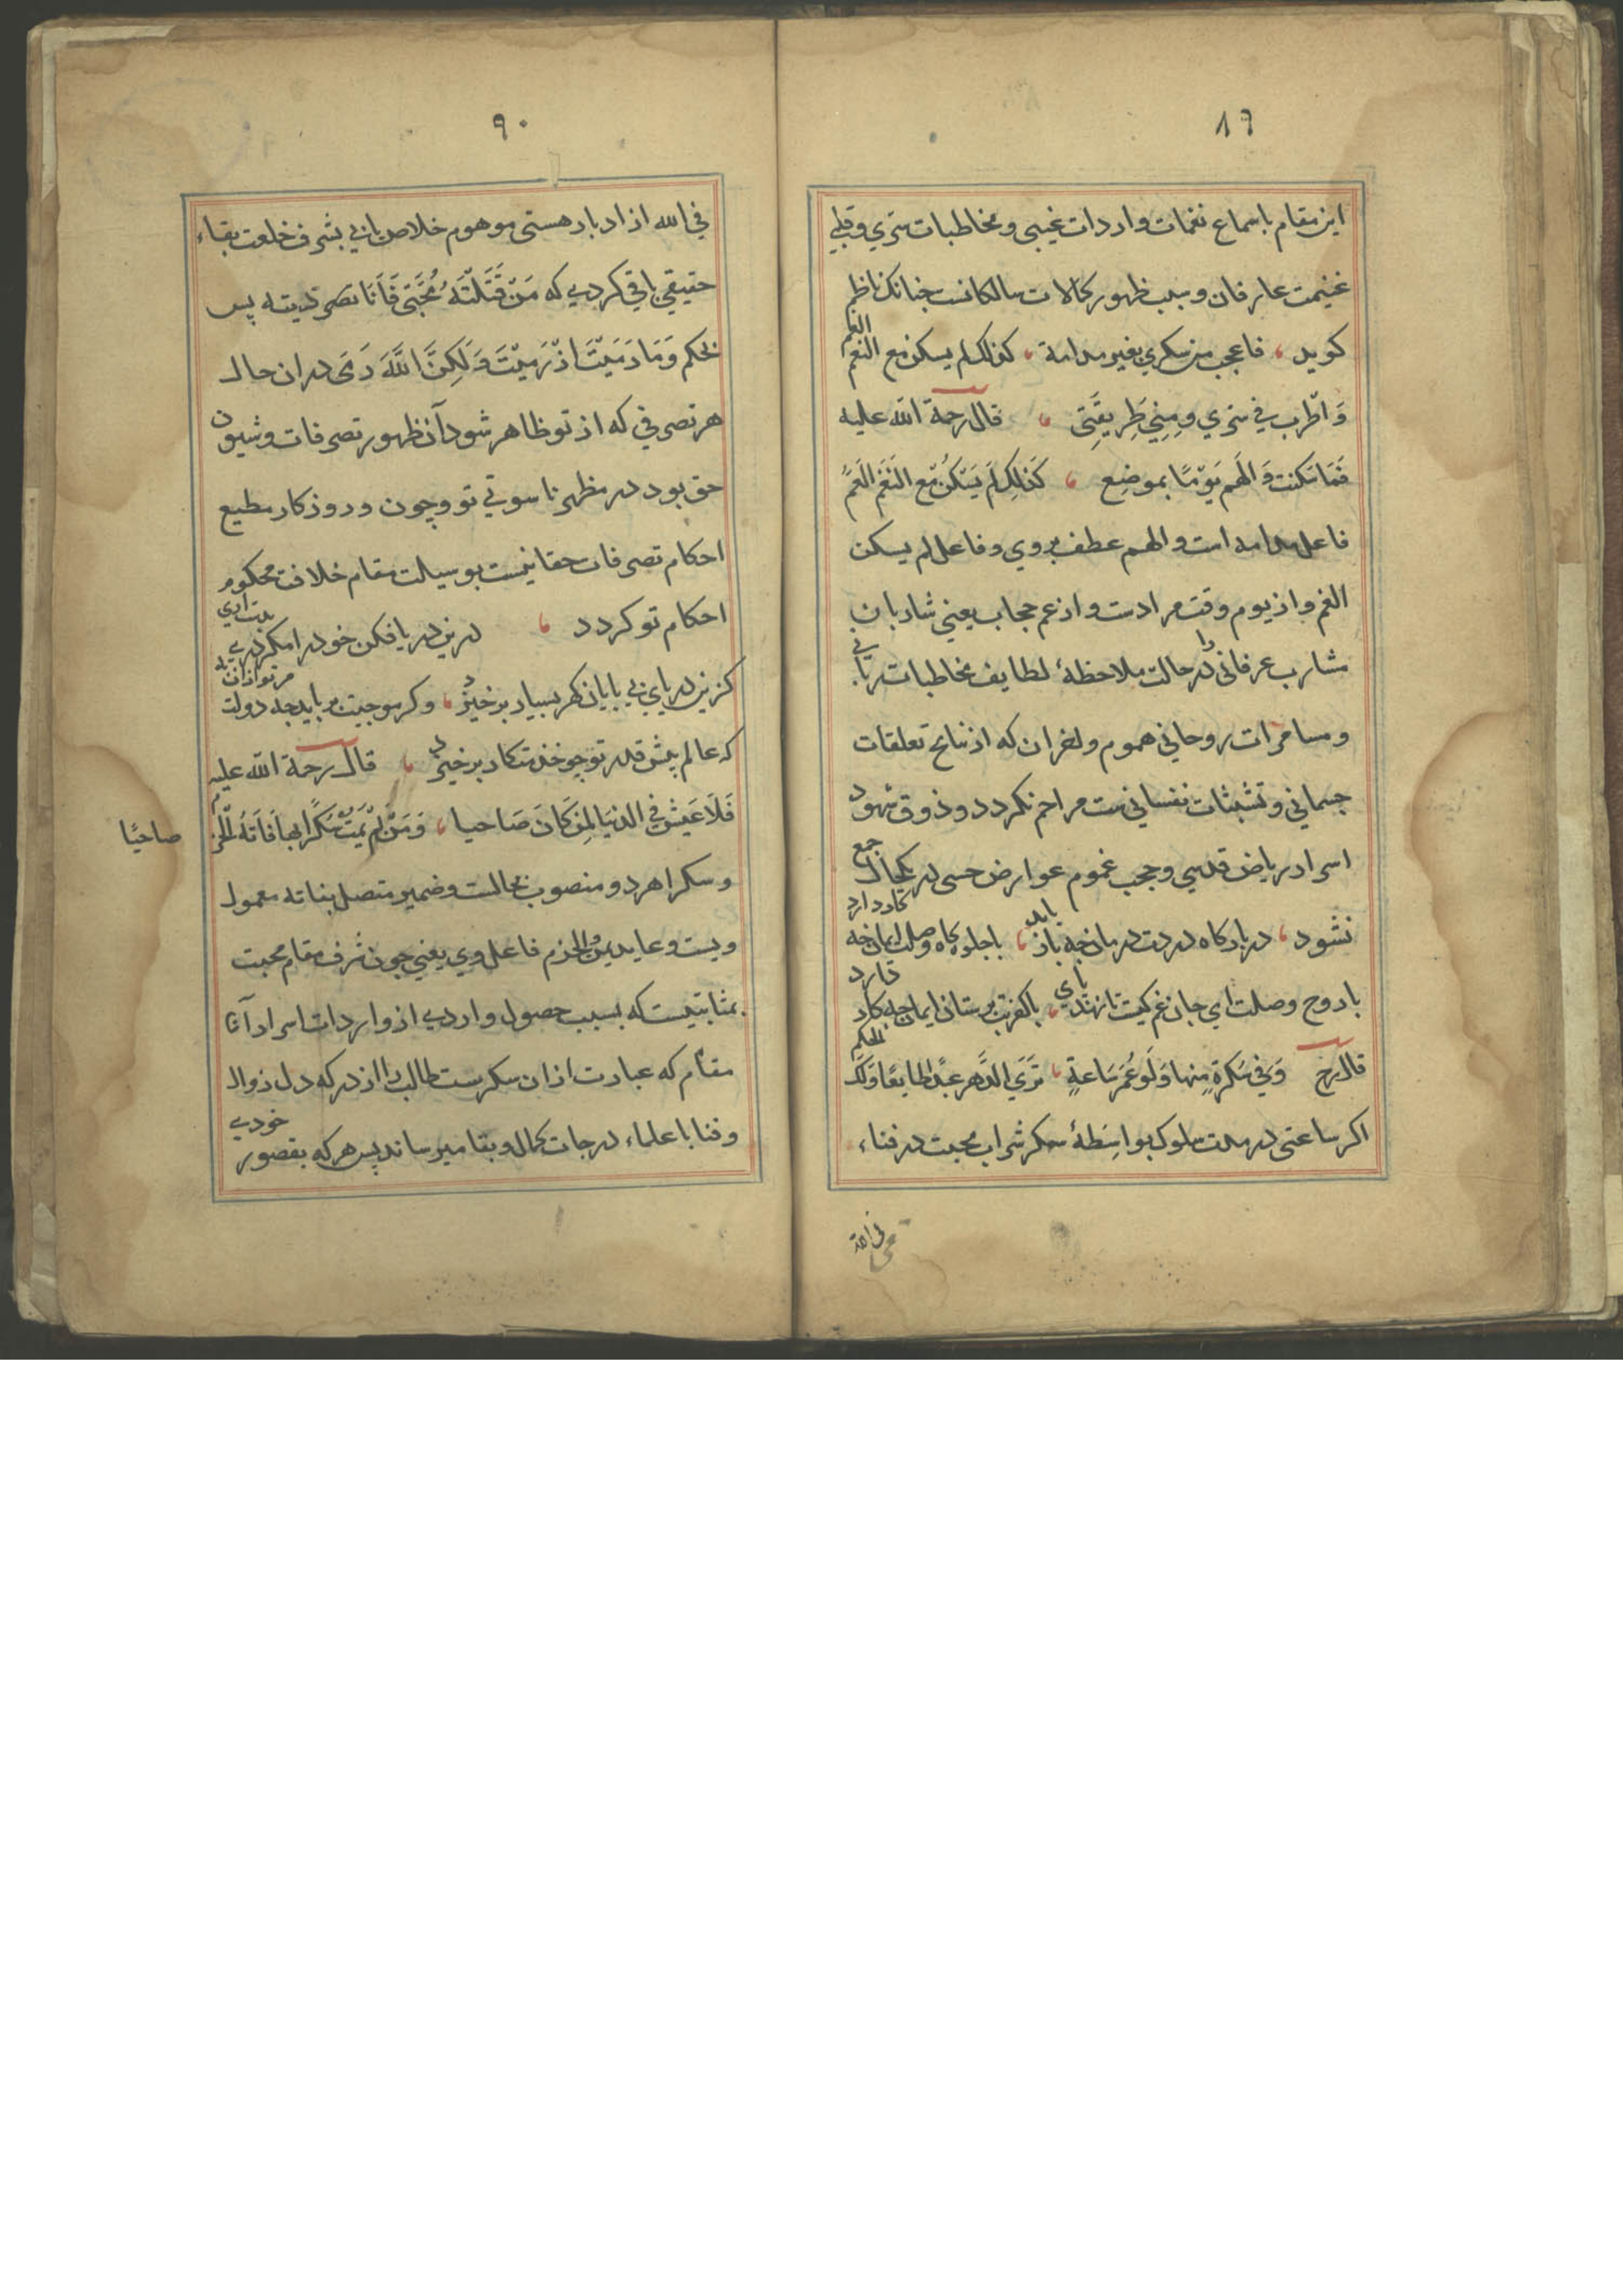 ۸۹
این مقام باسماع نغمات واردات غیبی و مخاطبات سری و قلبی
غنیمت عارفان و سبب ظهور کمالات سالکانست چنانک ناظم
کوید فاعجب من سکری بغیر مدامة کذلک لم یسکن مع النغم الغم
وَاطْرب فی سِرّی ومِنِی طَرِیقَتِی قال رحمة الله علیه
فَمَا سَکنت وَالهَم یَوْمًا بموضِع کَذٰلِکَ لَم یَسْکُنْ مَع النَغَم الغَمّ
فاعل مدامه است والهم عطف بروی وفاعل لم یسکن
الغم واز یوم وقت مرادست واز غم حجاب یعنی شاربان
مشارب عرفانی را در حالت ملاحظهٔ لطایف مخاطبات ربانی
ومسامرات روحانی هموم واخزان که از نتایج تعلقات
جسمانی وتشبثات نفسانی ست مراحم نکردد وذوق شهود
اسرار ریاض قدسی وحجب غموم عوارض حسی در یکحال جمع
نشود در بارکاه دردت درمان چه باز یابد باجلوه کاه وصلت ایمان چه کار دارد
باروح وصلت ای جان غم کیست تا نهد پای باکفرت پرستان ایمان چه کار دارد
قال رح وَفِی سَکرَةٍ مِنها وَلَو عُمَر سَاعَةٍ تَرَی الدَّهرَ عَبدًا طایعًا وَلَکَ الحکم
اکر ساعتی در مدت سلوک بواسِطهٔ سکر شراب محبت در فناء
فی الله
۹۰
فی الله از ادبار هستی موهوم خلاص یابی بشرف خلعت بقاء
حقیقی باقی کردی که مَنْ قَتَلْتَهُ مُحَبَّتی فَاَنَا تصرفدیته پس
بحکم وَمَا رَمَیْتَ اذْ رَمَیْتَ وَلَکِنَّ اللهَ رَمَی در ان حال
هر تصرفی که از تو ظاهر شود آن ظهور تصرفات وشیون
حق بود در مظهر ناسوتی تو وچون ور وزکار مطیع
احکام تصرفات حقانیست بوسیلت مقام خلافت محکوم
احکام تو کردد درین دریا فکن خود را مکر دری بدست اری
کزین دریای بی پایان کهر بسیار برخیزد وکر موجیت برباید چه دولت مرترا زان به
که عالم پیش قدر تو چو خدمتکار برخیزد قال رحمة الله علیه
فَلَا عَیْشَ فِی الدنیا لِمَن کَانَ صَاحیا وَمَنْ لَمْ یَمُتْ سُکْرًا بها فَاتَهُ الْحزْمُ
صاحیًا
وسکرا هردو منصوب بحالست وضمیر متصل بفاته معمول
ویست وعاید بمن والحزم فاعل وی یعنی چون شرف مقام محبت
بمثابتیست که بسبب حصول واردی از واردات اسرار آنا
مقام که عبارت ازان سکرست طالب را از درکه دل زوال
وفنا باعلماء درجات کمال وبقا میرساند پس هرکه بقصور خودی